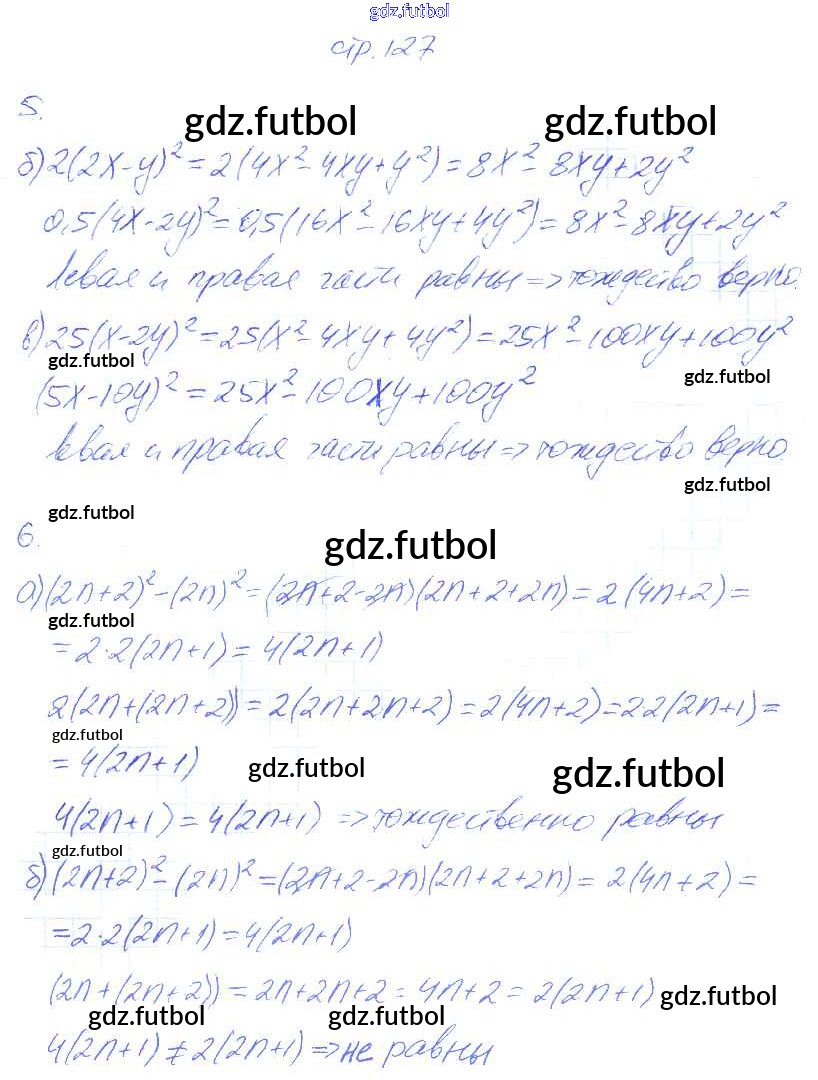 gdz.futbol
стр. 127
5.
gdz.futbol gdz.futbol
б) 2(2x-y)² = 2(4x² - 4xy + y²) = 8x² - 8xy + 2y²
0,5(4x-2y)² = 0,5(16x² - 16xy + 4y²) = 8x² - 8xy + 2y²
левая и правая части равны => тождество верно.
в) 25(x-2y)² = 25(x² - 4xy + 4y²) = 25x² - 100xy + 100y²
gdz.futbol gdz.futbol
(5x-10y)² = 25x² - 100xy + 100y²
левая и правая части равны => тождество верно.
gdz.futbol
gdz.futbol
6.
gdz.futbol
а) (2n+2)² - (2n)² = (2n+2-2n)(2n+2+2n) = 2(4n+2) =
gdz.futbol
= 2·2(2n+1) = 4(2n+1)
2(2n+(2n+2)) = 2(2n+2n+2) = 2(4n+2) = 2·2(2n+1) =
gdz.futbol
= 4(2n+1)
gdz.futbol gdz.futbol
4(2n+1) = 4(2n+1) => тождественно равны
gdz.futbol
б) (2n+2)² - (2n)² = (2n+2-2n)(2n+2+2n) = 2(4n+2) =
= 2·2(2n+1) = 4(2n+1)
(2n+(2n+2)) = 2n+2n+2 = 4n+2 = 2(2n+1)
gdz.futbol
gdz.futbol gdz.futbol
4(2n+1) ≠ 2(2n+1) => не равны